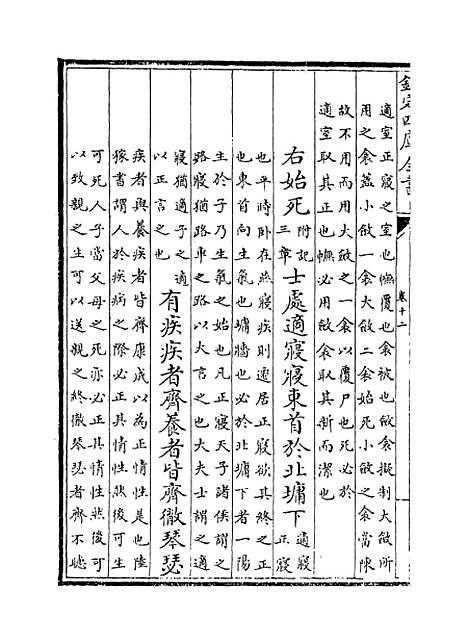 欽定四庫全書
卷十二
適室正寢之室也幠覆也斂衾被也斂衾擬制大斂所
用之衾蓋小斂一衾大斂二衾始死小斂之衾當陳
故不用而用大斂之一衾以覆尸也死必於
適室取其正也幠必用斂衾取其新而潔也
右始死附記三章士處適寢寢東首於北墉下適寢正寢
也平時卧在燕寢疾則遷居正寢欲其終之正
也東首向生氣也墉牆也必於北墉下者一陽
生於子乃生氣之始也凡正寢天子諸侯謂之
路寢猶路車之路以大言之也大夫士謂之適
寢猶適子之適以正言之也有疾疾者齊養者皆齊徹琴瑟
疾者與養疾者皆齊康成以為正情性是也陸
稼書謂人於疾病之際必正其情性然後可生
可死人子當父母之死亦必正其情性然後可
以致親之生可以送親之終徹琴瑟者齊不聽